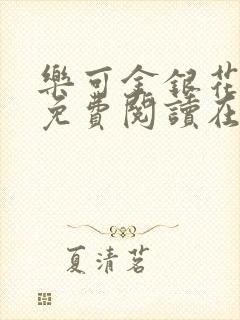 樂可金銀花
免費閱讀在
夏清茗